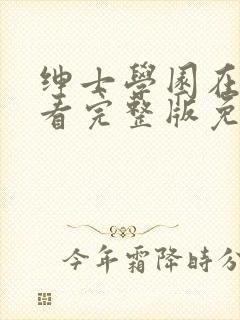 绅士學园在
看完整版免
今年霜降時分